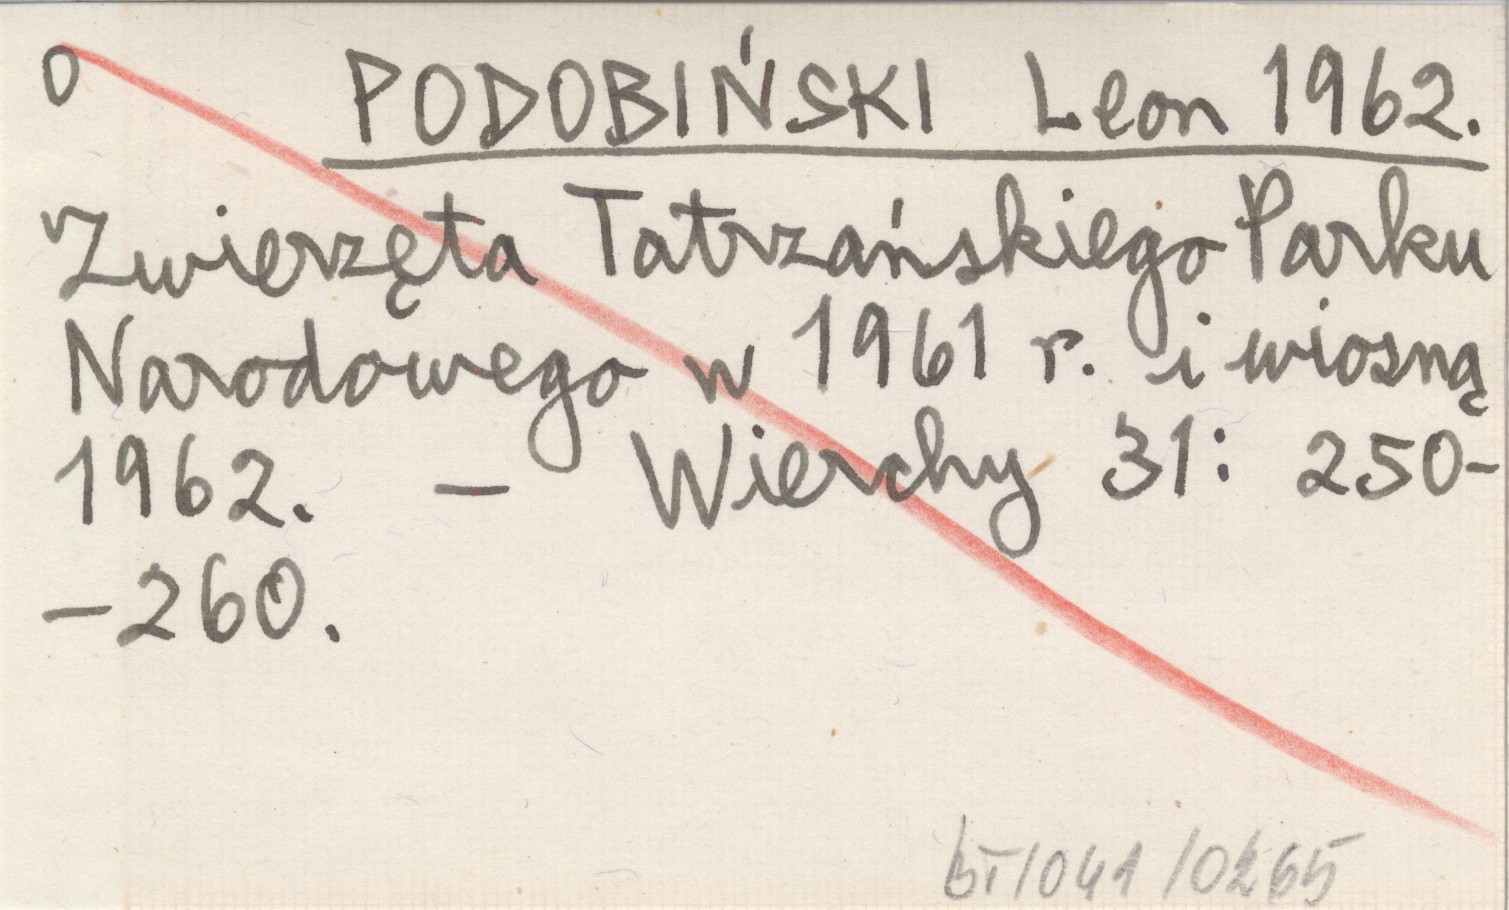 0 PODOBIŃSKI Leon 1962.
Zwierzęta Tatrzańskiego Parku
Narodowego w 1961 r. i wiosną
1962. – Wierchy 31: 250-
-260.
BT/041/0265